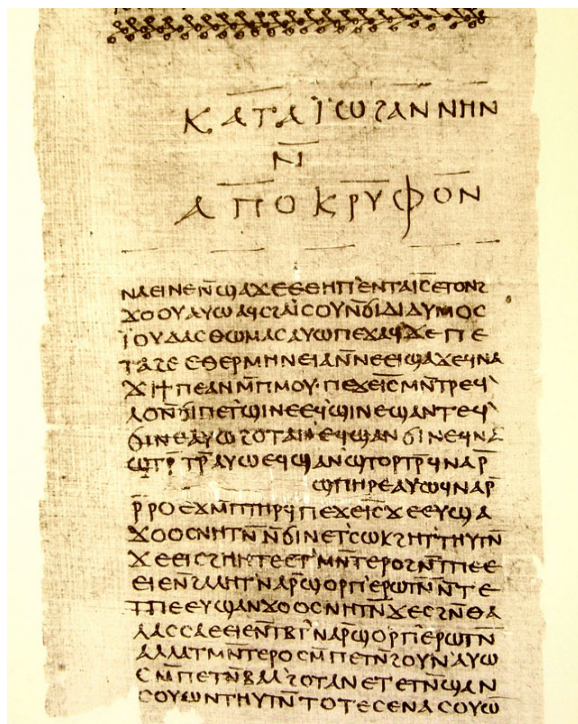 ⲕⲁⲧⲁ ⲓ̈ⲱϩⲁⲛⲛⲏⲛ
ⲛ̄
ⲁⲡⲟⲕⲣⲩⲫⲟⲛ
ⲛⲁⲉⲓⲛⲉⲛ̄ϣⲁϫⲉⲉⲑⲏⲡⲉⲛⲧⲁⲓ̅ⲥ̅ⲉⲧⲟⲛϩ
ϫⲟⲟⲩⲁⲩⲱⲁϥⲥϩⲁⲓ̈ⲥⲟⲩⲛ̄ϭⲓⲇⲓⲇⲩⲙⲟⲥ
ⲓ̈ⲟⲩⲇⲁⲥⲑⲱⲙⲁⲥⲁⲩⲱⲡⲉϫⲁϥϫⲉⲡⲉ
ⲧⲁϩⲉⲉⲑⲉⲣⲙⲏⲛⲉⲓⲁⲛ̄ⲛⲉⲉⲓϣⲁϫⲉϥⲛⲁ
ϫⲓϯⲡⲉⲁⲛⲙ̄ⲡⲙⲟⲩ·ⲡⲉϫⲉⲓ̅ⲥ̅ⲙⲛ̄ⲧⲣⲉϥ
ⲗⲟⲛ̄ϭⲓⲡⲉⲧϣⲓⲛⲉⲉϥϣⲓⲛⲉϣⲁⲛⲧⲉϥ
ϭⲓⲛⲉⲁⲩⲱϩⲟⲧⲁⲛⲉϥϣⲁⲛϭⲓⲛⲉϥⲛⲁ
ϣⲧⲣ̄ⲧⲣ̄ⲁⲩⲱⲉϥϣⲁⲛϣⲧⲟⲣⲧⲣ̄ϥⲛⲁⲣ̄
ϣⲡⲏⲣⲉⲁⲩⲱϥⲛⲁⲣ̄
ⲣ̄ⲣⲟⲉϫⲙ̄ⲡⲧⲏⲣϥⲡⲉϫⲉⲓ̅ⲥ̅ϫⲉⲉⲩϣⲁ
ϫⲟⲟⲥⲛⲏⲧⲛ̄ⲛ̄ϭⲓⲛⲉⲧⲥⲱⲕϩⲏⲧⲧⲏⲩⲧⲛ̄
ϫⲉⲉⲓⲥϩⲏⲏⲧⲉⲉⲧⲙⲛ̄ⲧⲉⲣⲟϩⲛ̄ⲧⲡⲉⲉ
ⲉⲓⲉⲛ̄ϩⲁⲗⲏⲧⲛⲁⲣ̄ϣⲟⲣⲡⲉⲣⲱⲧⲛ̄ⲛ̄ⲧⲉ
ⲧⲡⲉⲉⲩϣⲁⲛϫⲟⲟⲥⲛⲏⲧⲛ̄ϫⲉⲥϩⲛ̄ⲑⲁ
ⲗⲁⲥⲥⲁⲉⲉⲓⲉⲛ̄ⲧⲃⲧⲛⲁⲣ̄ϣⲟⲣⲡⲉⲣⲱⲧⲛ̄
ⲁⲗⲗⲁⲧⲙⲛ̄ⲧⲉⲣⲟⲥⲙ̄ⲡⲉⲧⲛ̄ϩⲟⲩⲛⲁⲩⲱ
ⲥⲙ̄ⲡⲉⲧⲛ̄ⲃⲁⲗϩⲟⲧⲁⲛⲉⲧⲉⲧⲛ̄ϣⲁⲛ
ⲥⲟⲩⲱⲛⲧⲏⲩⲧⲛ̄ⲧⲟⲧⲉⲥⲉⲛⲁⲥⲟⲩⲱ